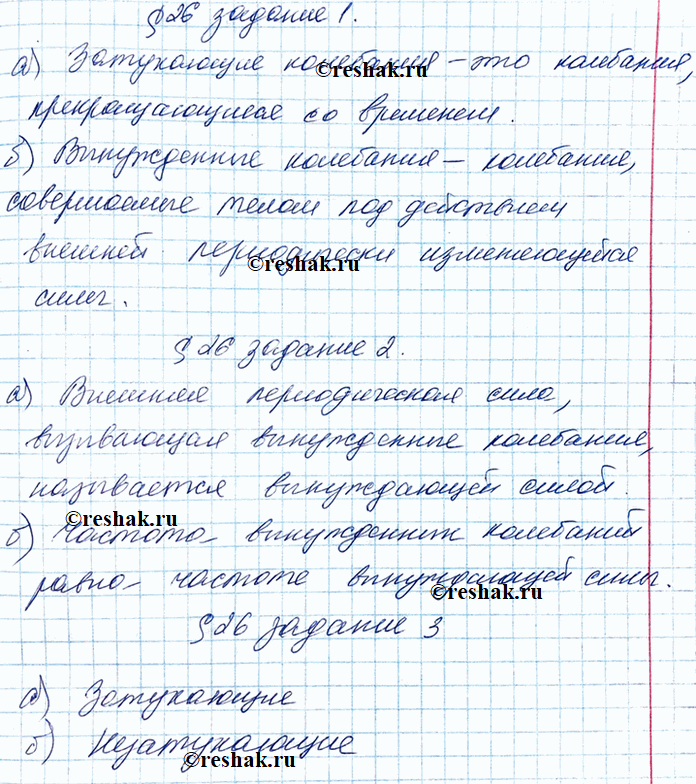 §26 задание 1.
а) Затухающие колебания – это колебания,
прекращающиеся со временем.
б) Вынужденные колебания – колебания,
совершаемые телом под действием
внешней периодически изменяющейся
силы.
§26 задание 2.
а) Внешняя периодическая сила,
вызывающая вынужденные колебания,
называется вынуждающей силой.
б) Частота вынужденных колебаний
равна частоте вынуждающей силы.
§26 задание 3
а) Затухающие
б) Незатухающие
©reshak.ru
©reshak.ru
©reshak.ru
©reshak.ru
©reshak.ru
©reshak.ru